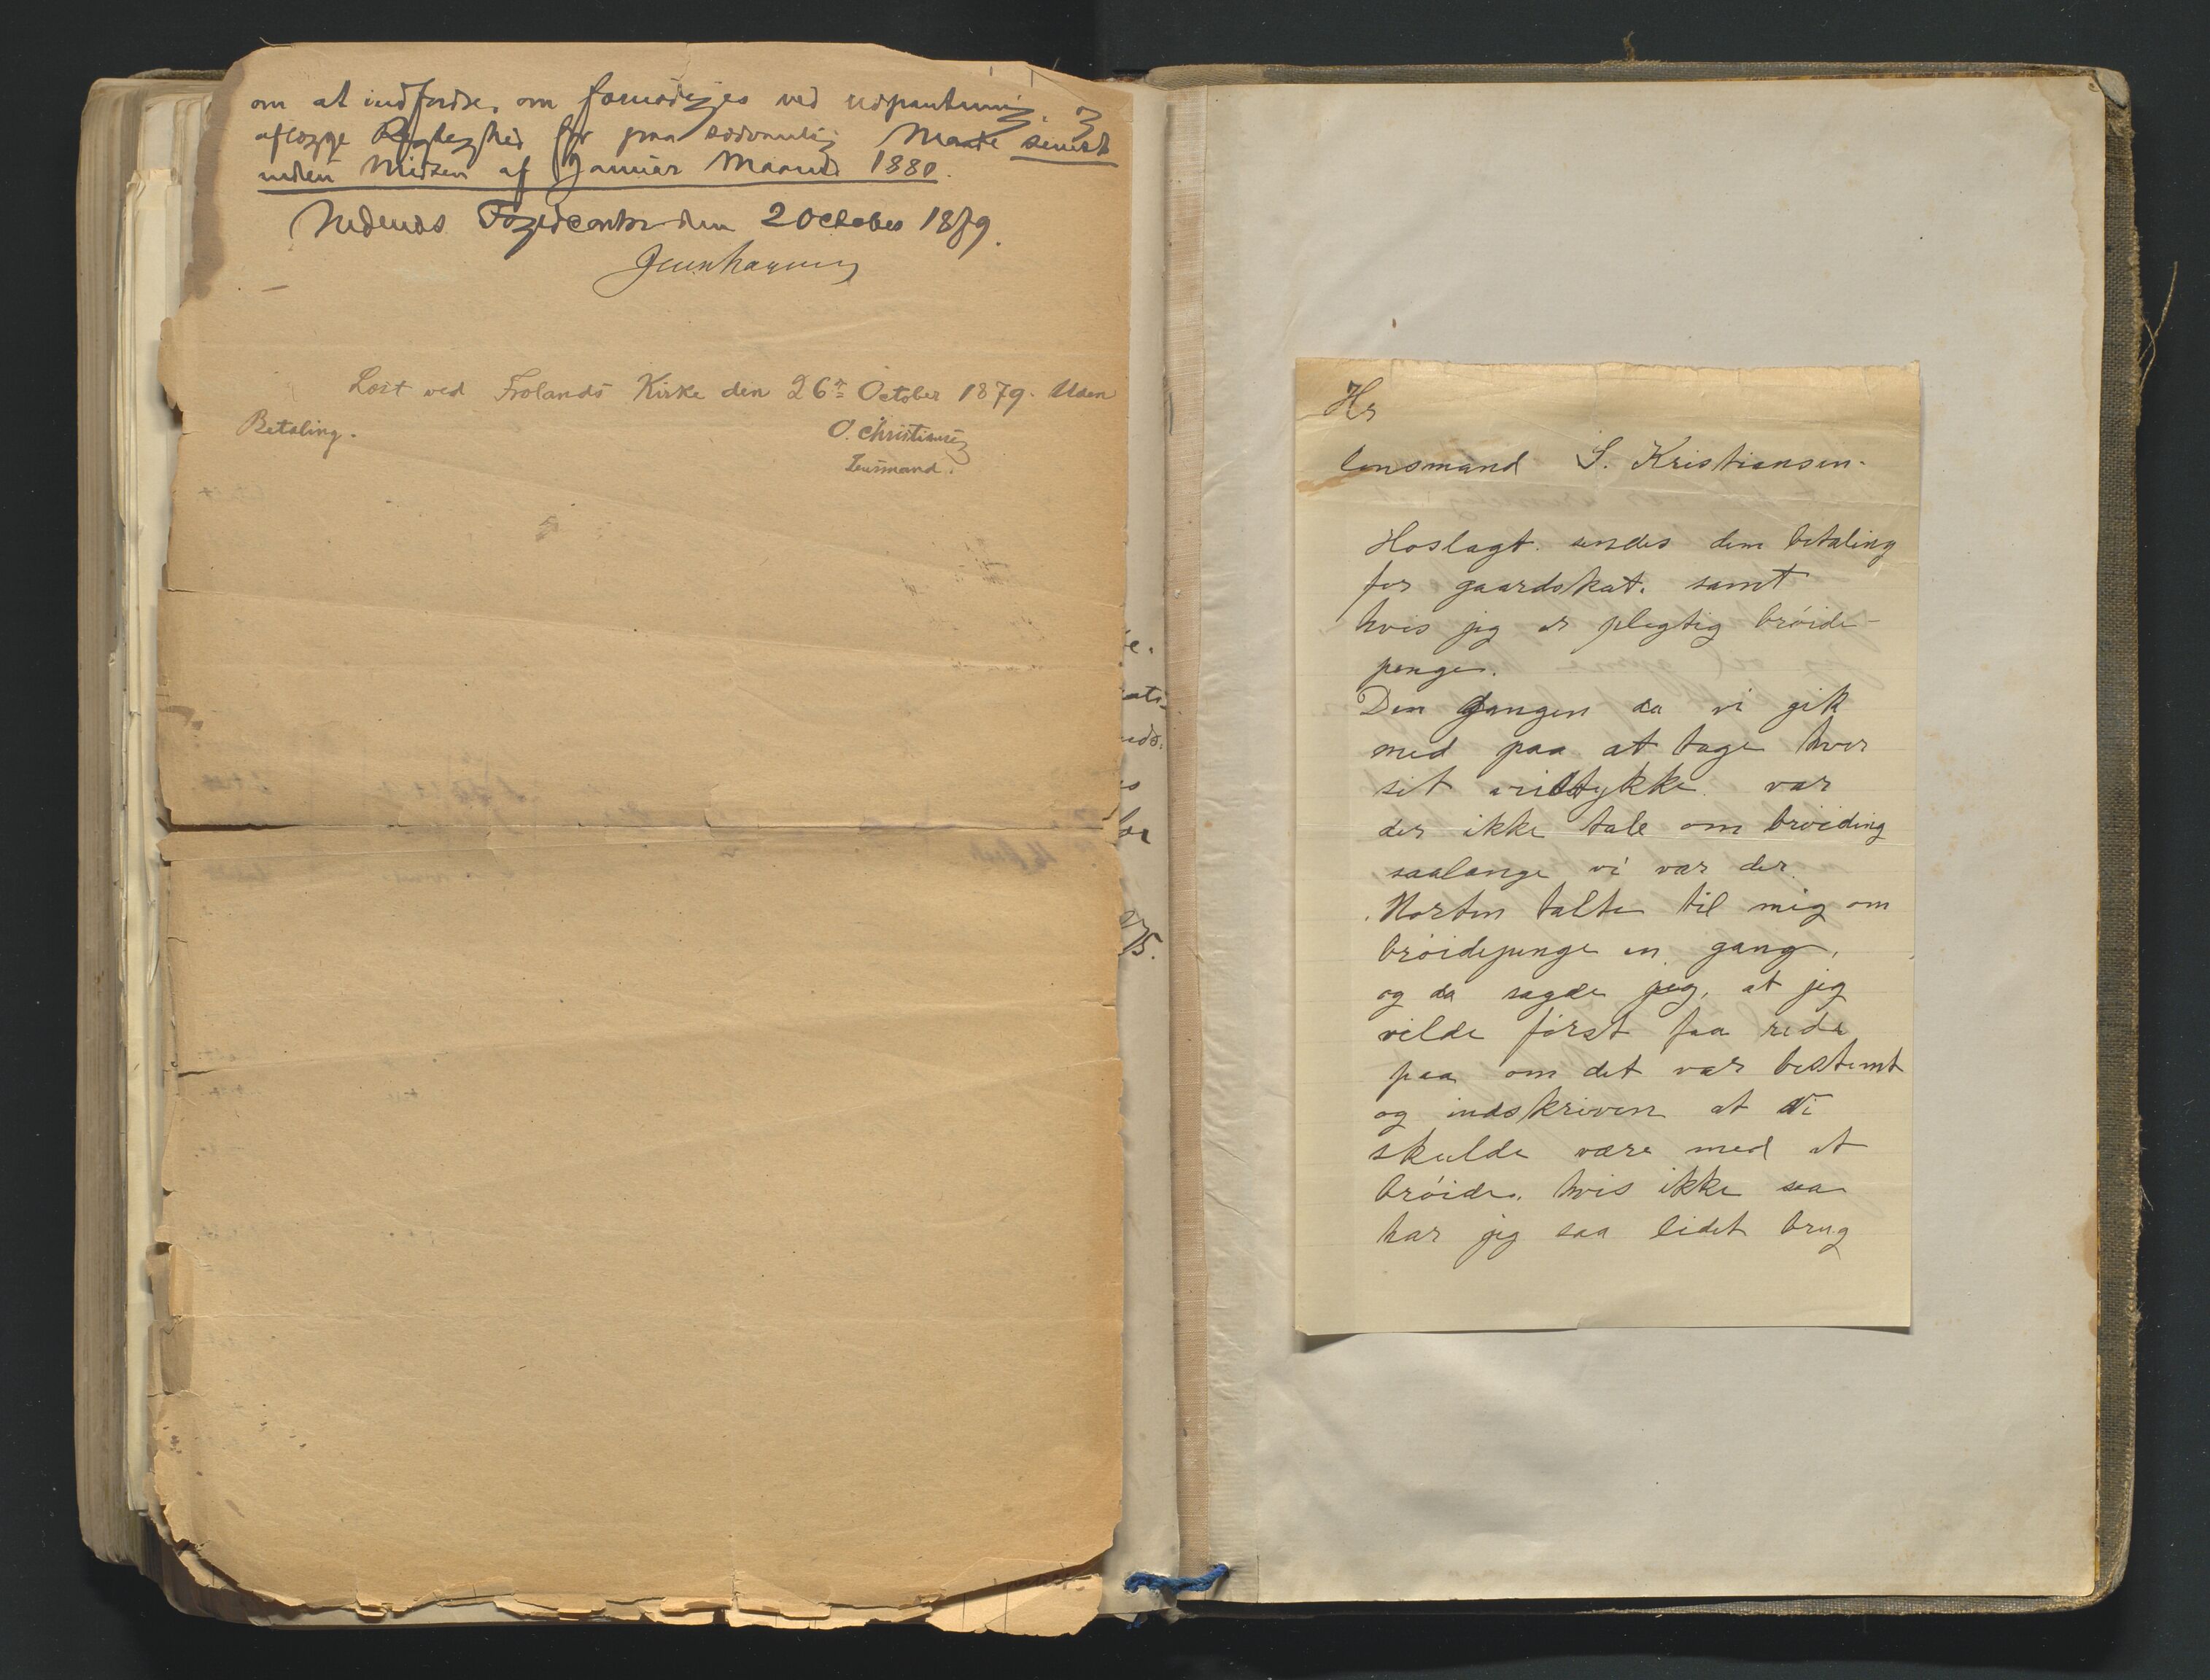 om at indfordre, om fornødiges ved Udpantning. 3
aflægge Rigtighed for paa sædvanlig Maate senest
inden Midten af Januar Maaned 1880.
Nedenæs Fogedcontor den 2 October 1879.
Læst ved Frolands Kirke den 26de October 1879. Uden
Betaling.
O. Christiansen
Lensmand.
Hr
lensmand S. Kristiansen.
Hoslagt sendes dem betaling
for gaardskat. samt
hvis jeg er plegtig brøide-
penger.
Den gangen da vi gik
med paa at tage hver
sit veistykke var
der ikke tale om brøiding
saalænge vi var der.
Morten talte til mig om
brøidepenge en gang,
og da sagde jeg, at jeg
vilde først faa rede
paa om det var bestemt
og indskriven at vi
skulde være med at
brøide. hvis ikke saa
har jeg saa lidet brug